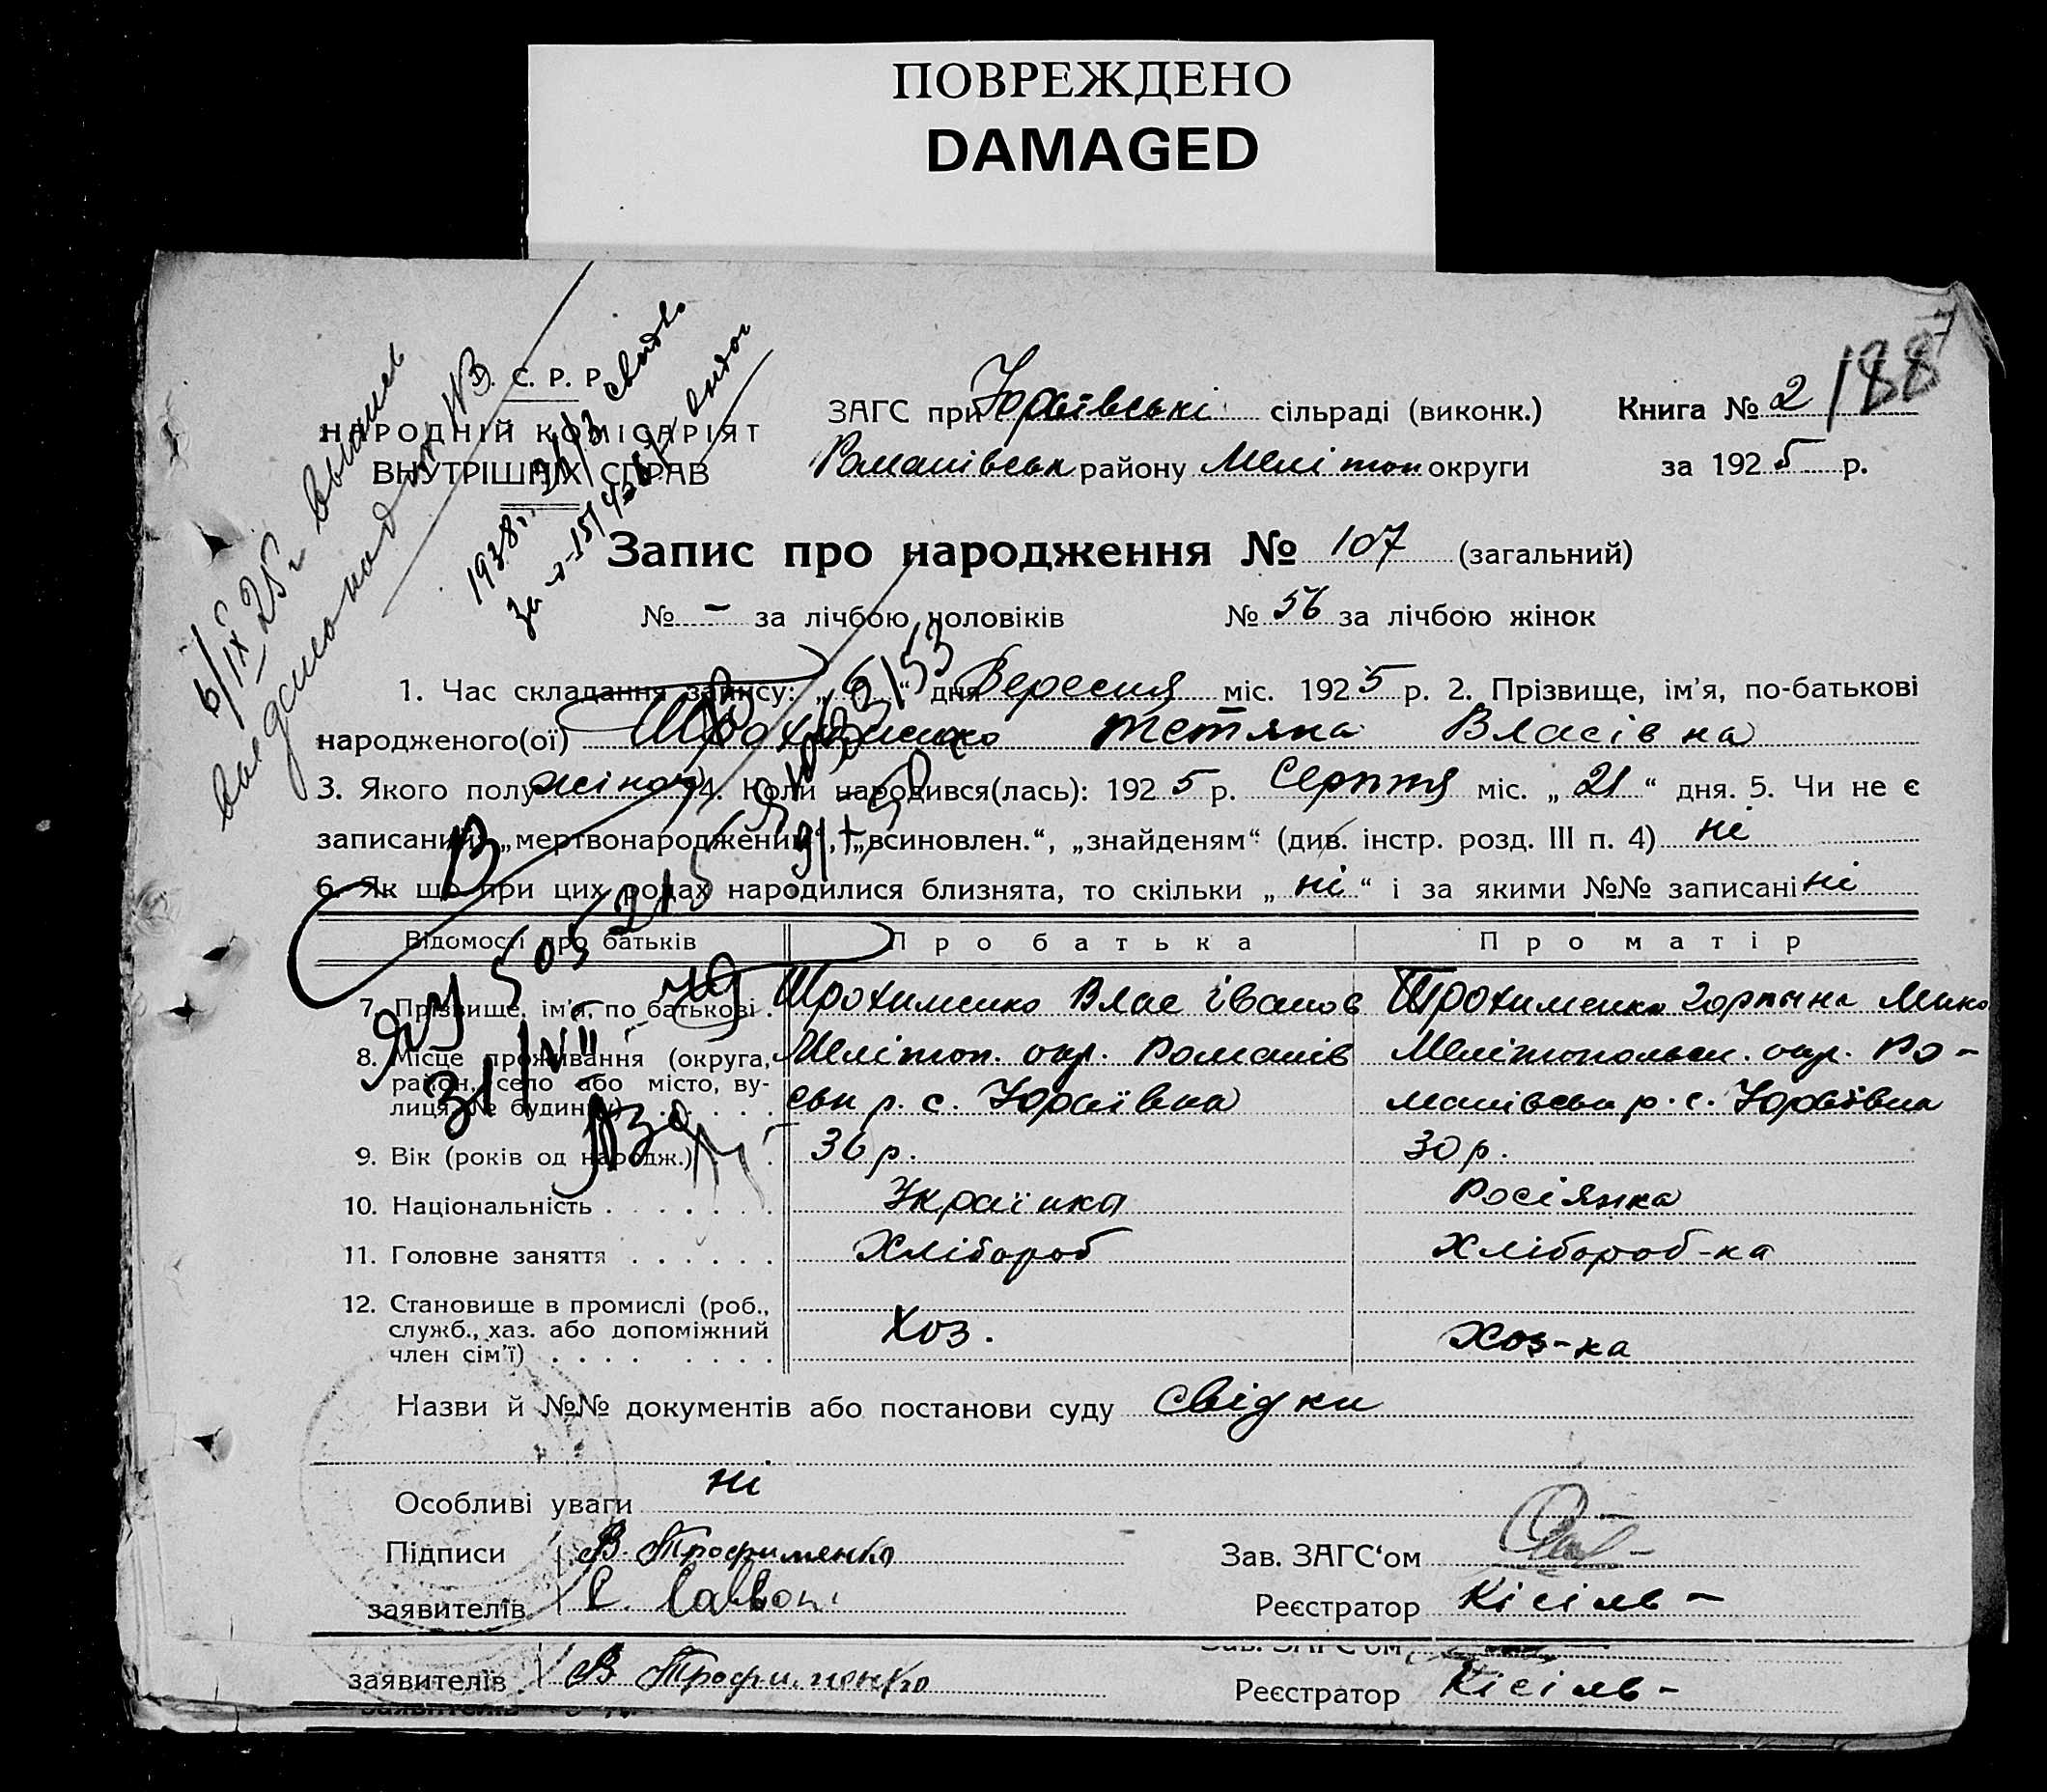 ПОВРЕЖДЕНО
DAMAGED
С. Р. Р.
НАРОДНІЙ КОМІСАРІЯТ
ВНУТРІШНІХ СПРАВ
ЗАГС при Юраївські сільраді (виконк.) Книга № 2 188
Романівськ району Мелітоп округи за 1925 р.
6/IX 25 г
1938 г.
Запис про народження № 107 (загальний)
№ – за лічбою чоловіків № 56 за лічбою жінок
1. Час складання запису: „ 6 “ дня Вересня міс. 1925 р. 2. Прізвище, ім’я, по-батькові
народженого(ої) Трохименко Тетяна Власівна
3. Якого полу жіноч 4. Коли народився(лась): 1925 р. Серпня міс. „ 21 “ дня. 5. Чи не є
записаний „мертвонароджений“, „всиновлен.“, „знайденям“ (див. інстр. розд. III п. 4) ні
6. Як що при цих родах народилися близнята, то скільки „ ні “ і за якими №№ записані ні
Відомості про батьків Про батька Про матір
7. Прізвище, ім’я, по батькові. Трохименко Влас Іванов Трохименко Горпына Мико
8. Місце проживання (округа, Меліноп. окр. Романів Мелітопольск. окр. Ро-
район, село або місто, ву- ськ р. с. Юраївка манівськ р. с. Юраївка
лиця, № будинку)
9. Вік (років од народж.) 36 р. 30 р.
10. Національність Українка Росіянка
11. Головне заняття Хлібороб Хлібороб-ка
12. Становище в промислі (роб.,
служб., хаз. або допоміжний Хоз. Хоз-ка
член сім’ї)
Назви й №№ документів або постанови суду свідки
Особливі уваги ні
Підписи В. Трофименко Зав. ЗАГС‘ом
заявителів Реєстратор Кісіль –
Зав. ЗАГС‘ом
заявителів В Трофименко Реєстратор Кісіль –